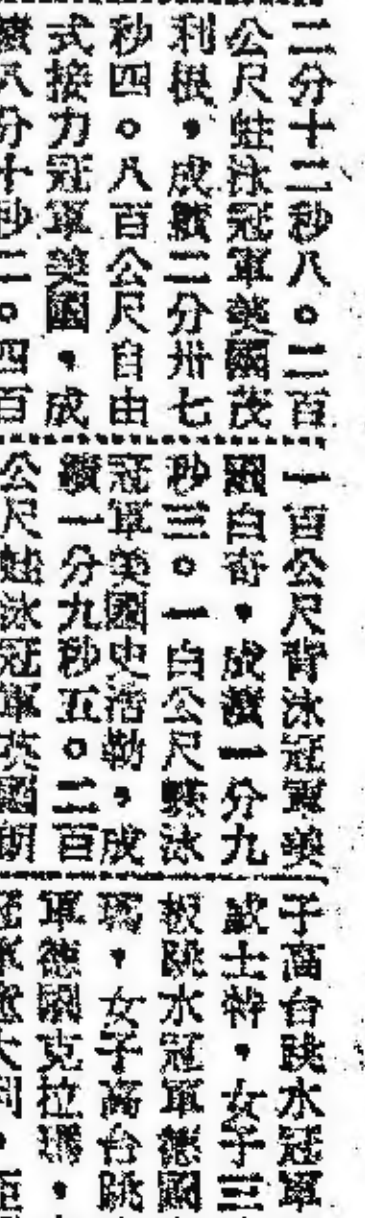 二分十二秒八。二百
公尺蛙泳冠軍美國茂
利根，成績二分卅七
秒四。八百公尺自由
式接力冠軍美國，成
績八分十秒二。四百
一百公尺背泳冠軍美
國白奇，成績一分九
秒三。一白公尺蝶泳
冠軍美國史浩勒，成
績一分九秒五。二百
公尺蛙泳冠軍英國朗
子高台跳水冠軍
威士特，女子三
板跳水冠軍德國
瑪，女子高台跳
軍德國克拉瑪，